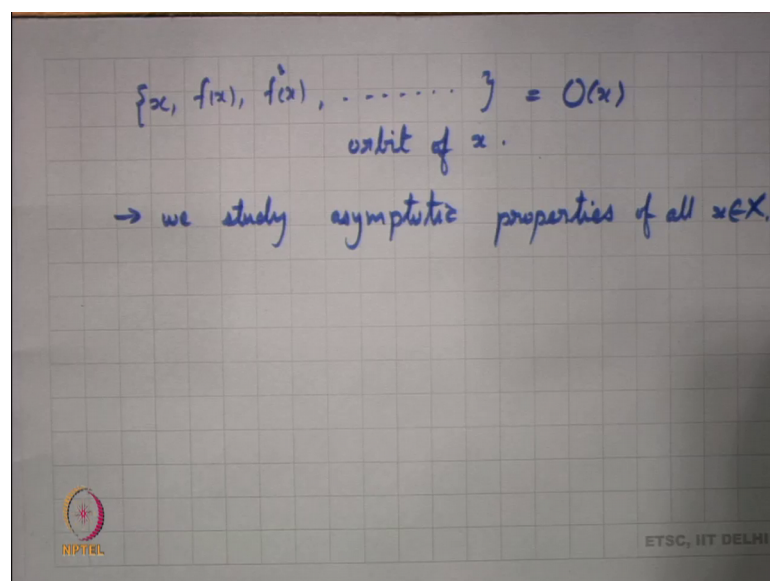 {x, f(x), f²(x), ........ } = O(x)
orbit of x.
→ we study asymptotic properties of all x∈X.
NPTEL
ETSC, IIT DELHI